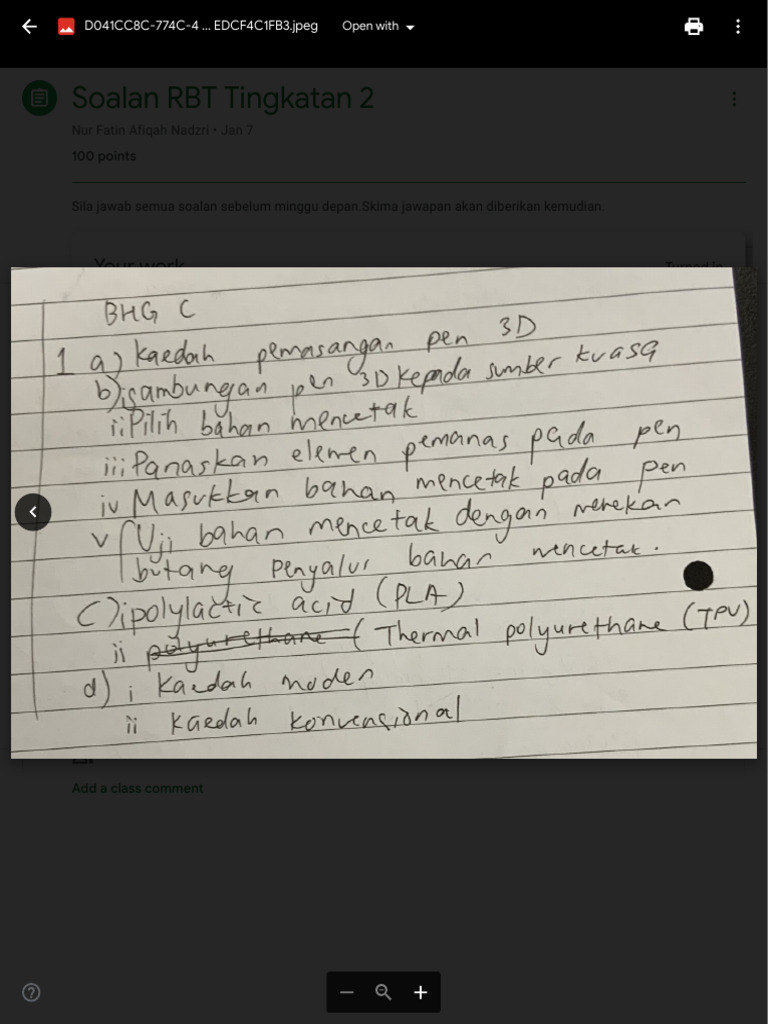 D041CC8C-774C-4 ... EDCF4C1FB3.jpeg Open with
Soalan RBT Tingkatan 2
Nur Fatin Afiqah Nadzri • Jan 7
100 points
Sila jawab semua soalan sebelum minggu depan.Skima jawapan akan diberikan kemudian.
Your work Turned in
BHG C
1 a) Kaedah pemasangan pen 3D
b) i sambungan pen 3D kepada sumber kuasa
ii Pilih bahan mencetak
iii Panaskan elemen pemanas pada pen
iv Masukkan bahan mencetak pada pen
v Uji bahan mencetak dengan menekan
butang penyalur bahan mencetak.
C) i polylactic acid (PLA)
ii polyurethane ( Thermal polyurethane (TPU)
d) i Kaedah moden
ii Kaedah konvensional
Add a class comment